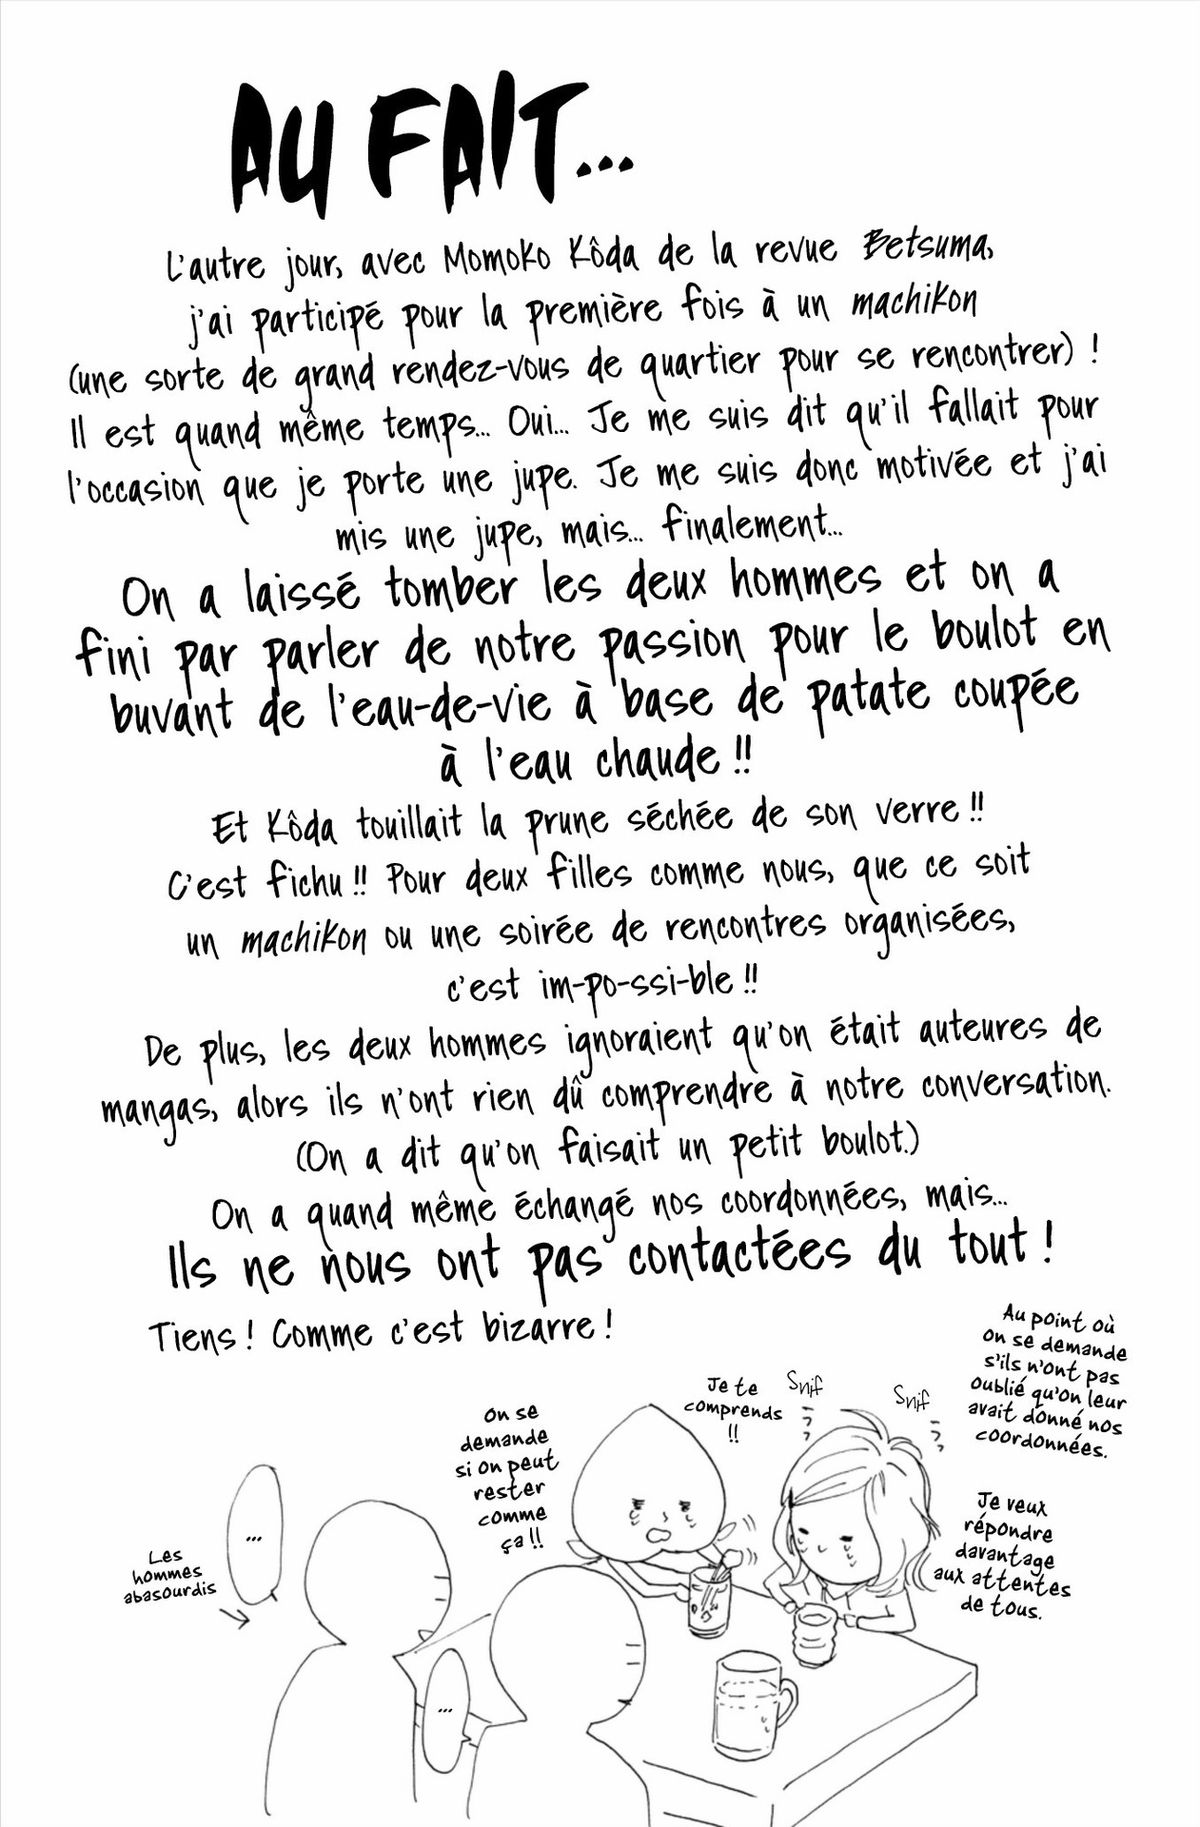 AU FAIT...
L'autre jour, avec Momoko Kôda de la revue Betsuma,
j'ai participé pour la première fois à un machikon
(une sorte de grand rendez-vous de quartier pour se rencontrer) !
Il est quand même temps... Oui... Je me suis dit qu'il fallait pour
l'occasion que je porte une jupe. Je me suis donc motivée et j'ai
mis une jupe, mais... finalement...
On a laissé tomber les deux hommes et on a
fini par parler de notre passion pour le boulot en
buvant de l'eau-de-vie à base de patate coupée
à l'eau chaude !!
Et Kôda touillait la prune séchée de son verre !!
C'est fichu !! Pour deux filles comme nous, que ce soit
un machikon ou une soirée de rencontres organisées,
c'est im-po-ssi-ble !!
De plus, les deux hommes ignoraient qu'on était auteures de
mangas, alors ils n'ont rien dû comprendre à notre conversation.
(On a dit qu'on faisait un petit boulot.)
On a quand même échangé nos coordonnées, mais...
Ils ne nous ont pas contactées du tout !
Tiens ! Comme c'est bizarre !
Au point où
on se demande
s'ils n'ont pas
oublié qu'on leur
avait donné nos
coordonnées.
Je te
comprends
!!
Snif
Snif
On se
demande
si on peut
rester
comme
ça !!
Je veux
répondre
davantage
aux attentes
de tous.
...
Les
hommes
abasourdis
...